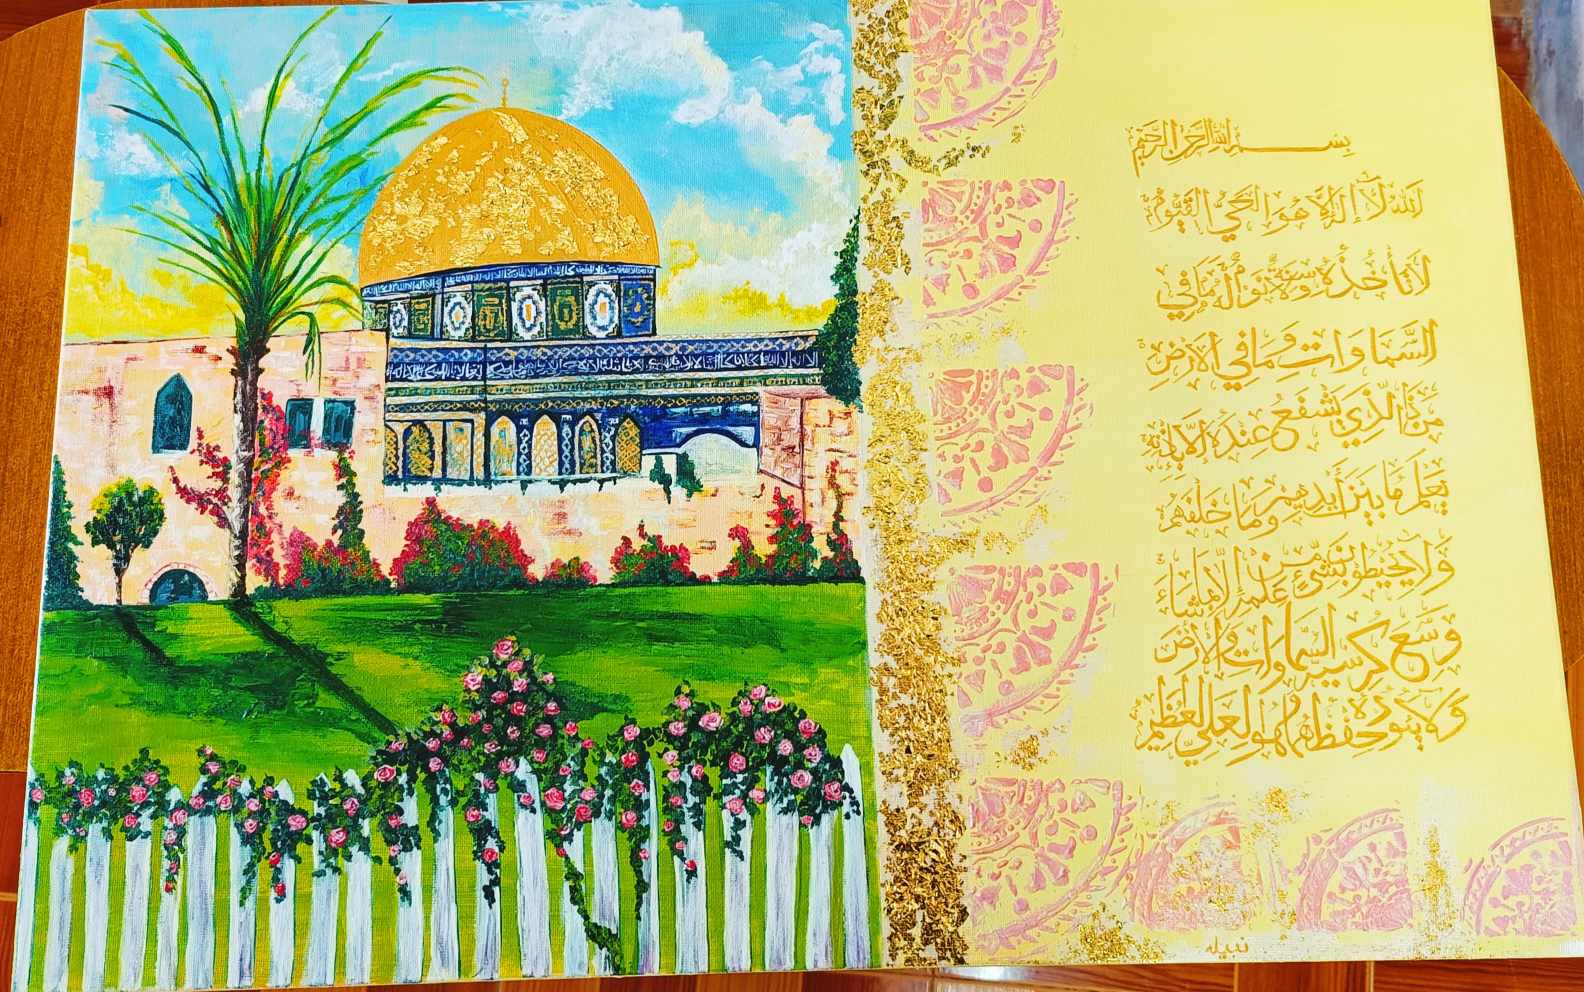 بسم الله الرحمن الرحيم
الله لا إله إلا هو الحي القيوم
لا تأخذه سنة ولا نوم له ما في
السماوات وما في الأرض
من ذا الذي يشفع عنده إلا بإذنه
يعلم ما بين أيديهم وما خلفهم
ولا يحيطون بشيء من علمه إلا بما شاء
وسع كرسيه السماوات والأرض
ولا يئوده حفظهما وهو العلي العظيم
نبيله